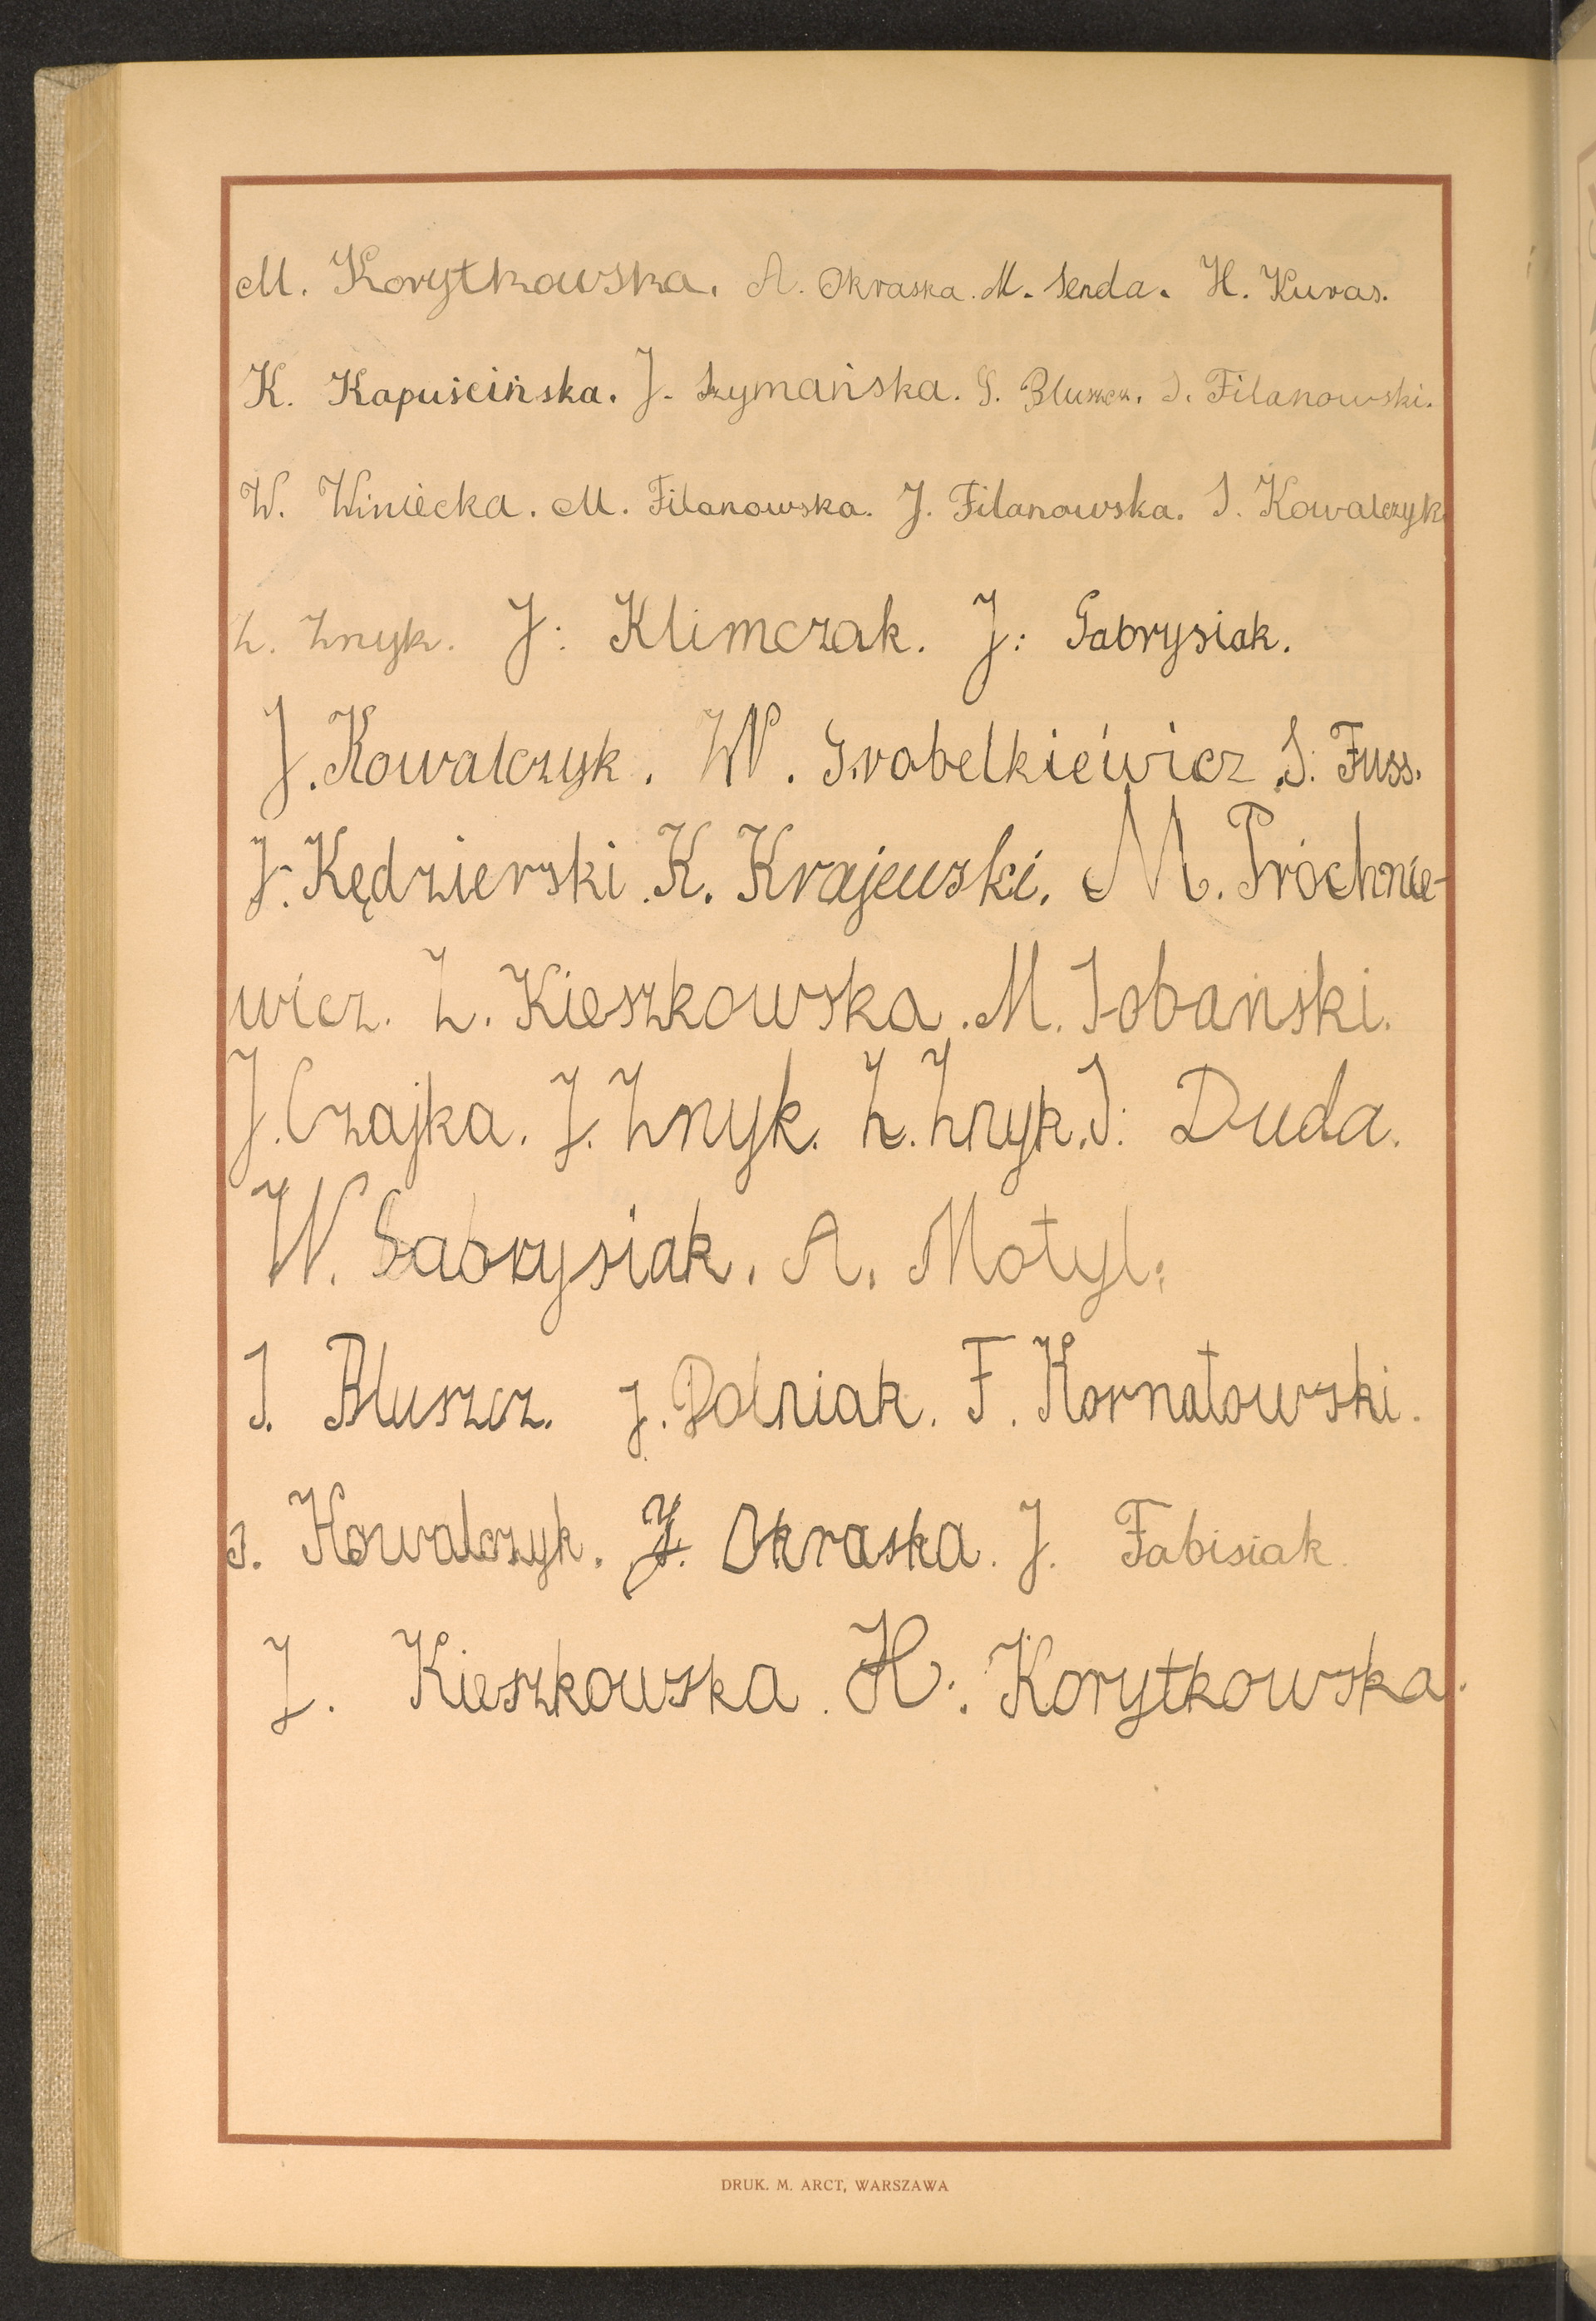 M. Korytkowska. A. Okraska. M. Senda. H. Kuras.
K. Kapuścińska. J. Szymańska. S. Bluszcz. S. Filanowski.
W. Winiecka. M. Filanowska. J. Filanowska. S. Kowalczyk.
Z. Znyk. J: Klimczak. J: Gabrysiak.
J. Kowalczyk. W. Grabelkiewicz. S: Fuss.
J. Kędzierski. K. Krajewski. M. Próchnie-
wicz. Z. Kieszkowska. M. Sobański.
J. Czajka. J. Znyk. Z. Znyk. S: Duda.
W. Gabrysiak. A. Motyl.
S. Bluszcz. J. Dolniak. F. Kornatowski.
S. Kowalczyk. J. Okraska. J. Fabisiak.
J. Kieszkowska. H. Korytkowska.
DRUK. M. ARCT, WARSZAWA